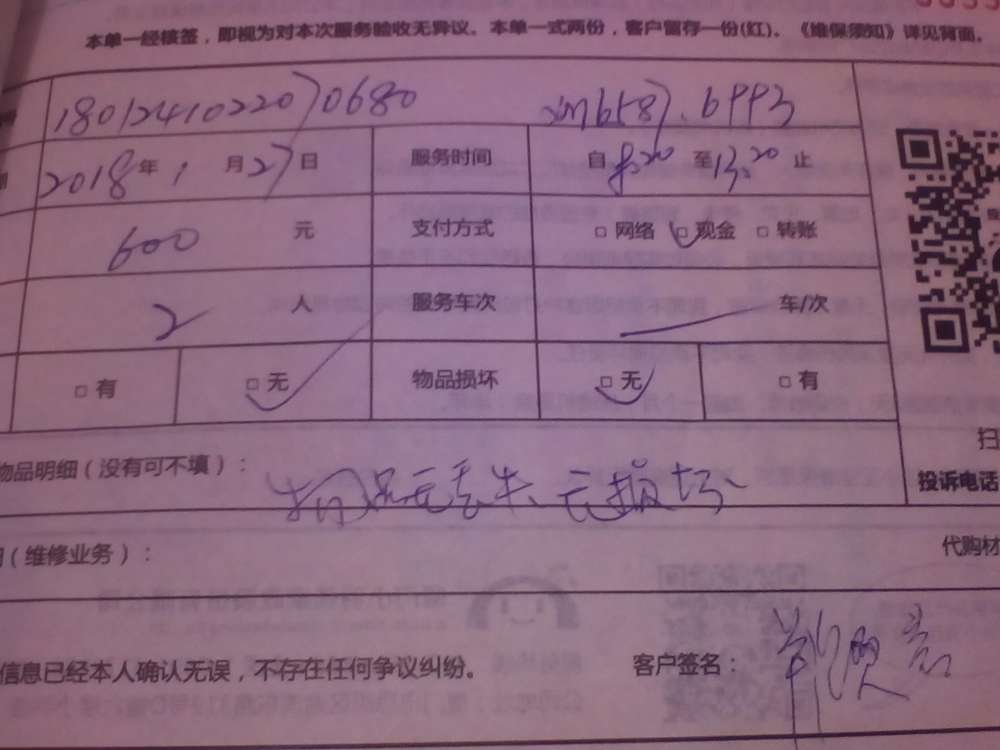 本单一经核签，即视为对本次服务验收无异议。本单一式两份，客户留存一份(红)。《维保须知》详见背面。
1801241022070680
2018年1月27日 服务时间 自8:20至13:20止
600元 支付方式 □网络 □现金 □转账
2人 服务车次 车/次
□有 □无 物品损坏 □无 □有
扫
物品明细（没有可不填）： 物品无丢失、无损坏 投诉电话
（维修业务）： 代购材
信息已经本人确认无误，不存在任何争议纠纷。 客户签名：